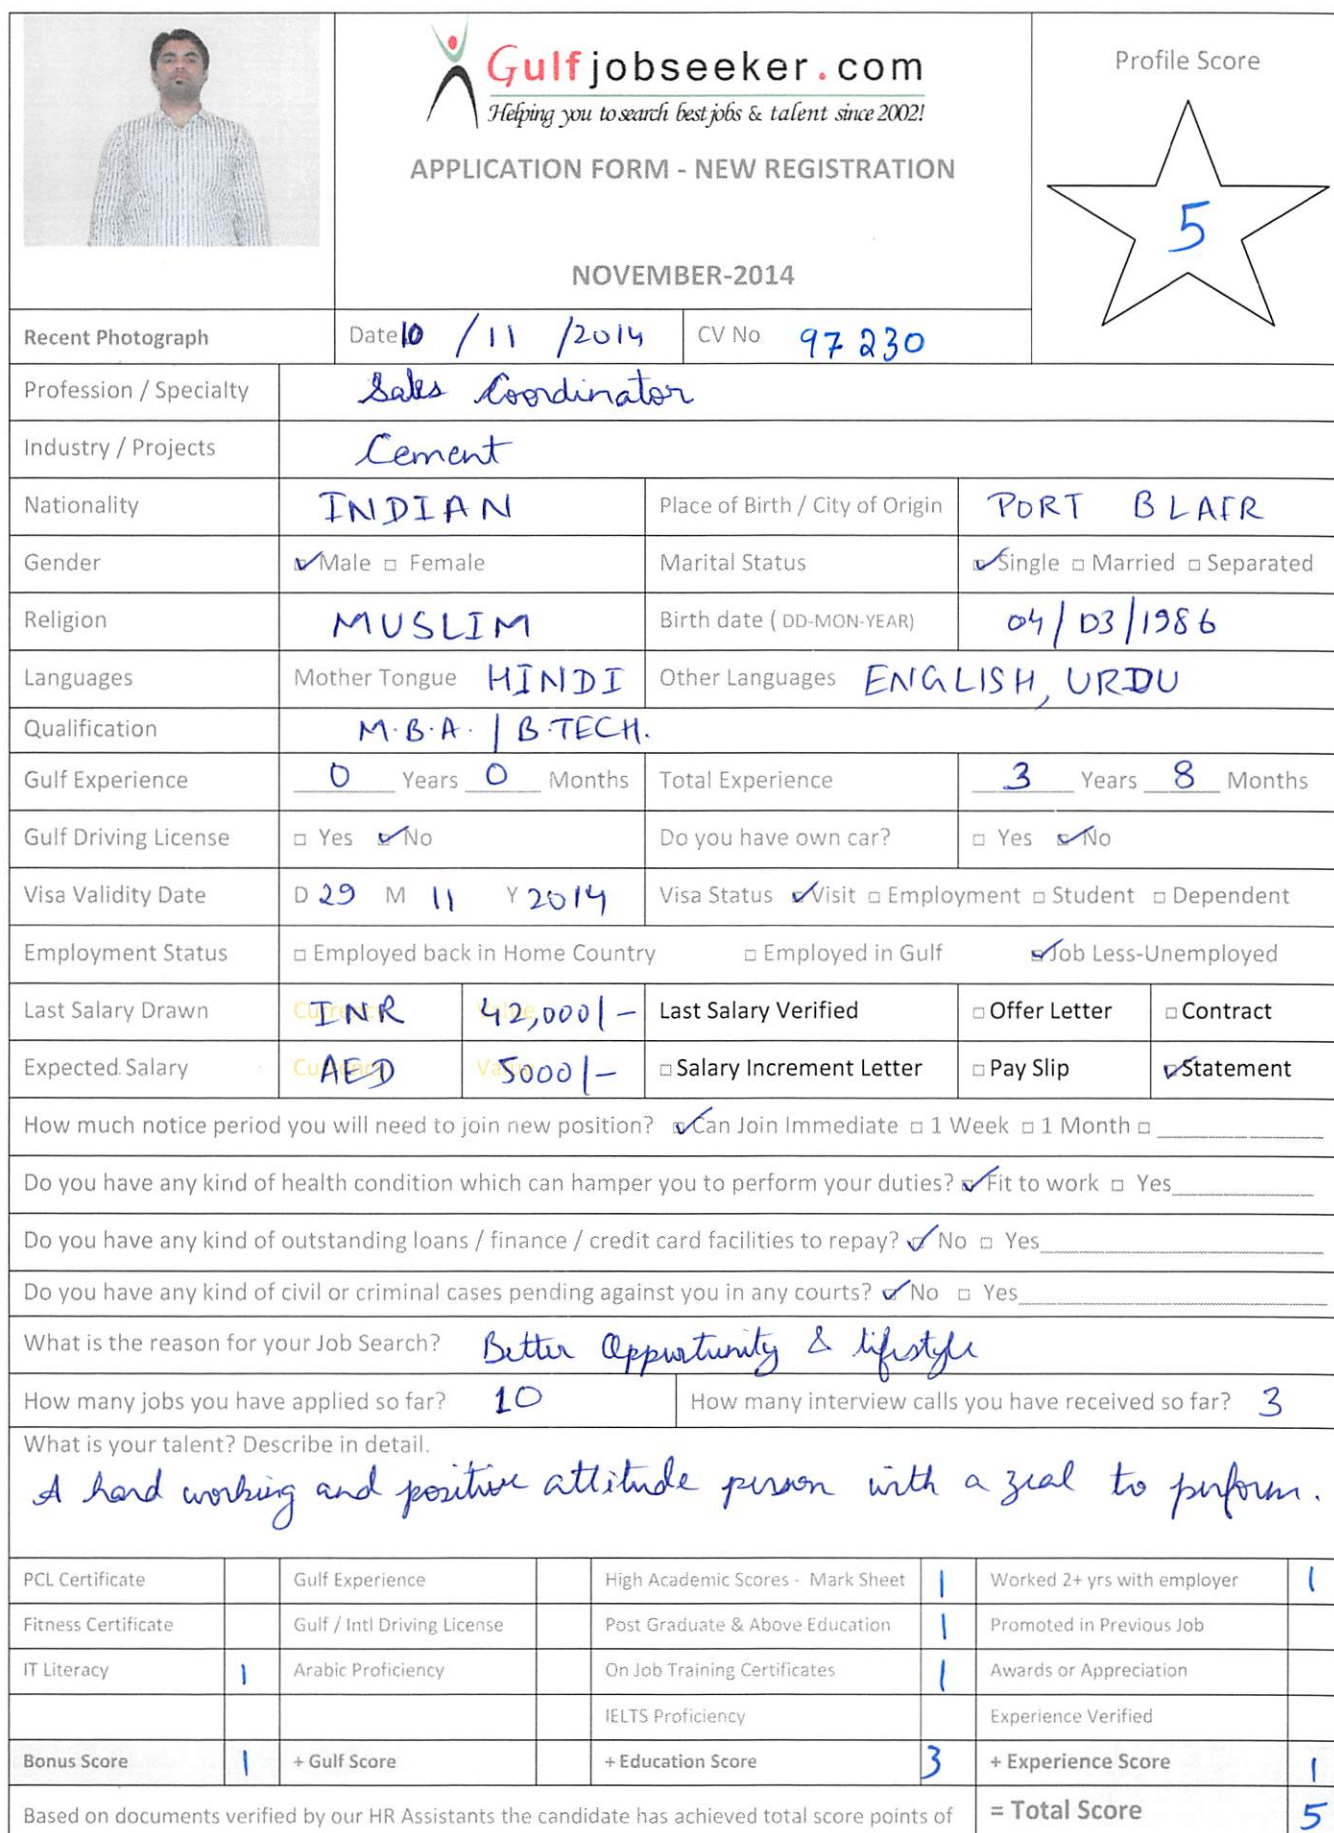 Gulfjobseeker.com
Helping you to search best jobs & talent since 2002!
APPLICATION FORM - NEW REGISTRATION
NOVEMBER-2014
Profile Score
5
Recent Photograph
Date 10 / 11 / 2014 CV No 97230
Profession / Specialty Sales Coordinator
Industry / Projects Cement
Nationality INDIAN Place of Birth / City of Origin PORT BLAIR
Gender ☑ Male □ Female Marital Status ☑ Single □ Married □ Separated
Religion MUSLIM Birth date ( DD-MON-YEAR) 04/03/1986
Languages Mother Tongue HINDI Other Languages ENGLISH, URDU
Qualification M.B.A. / B.TECH.
Gulf Experience 0 Years 0 Months Total Experience 3 Years 8 Months
Gulf Driving License □ Yes ☑ No Do you have own car? □ Yes ☑ No
Visa Validity Date D 29 M 11 Y 2014 Visa Status ☑ Visit □ Employment □ Student □ Dependent
Employment Status □ Employed back in Home Country □ Employed in Gulf ☑ Job Less-Unemployed
Last Salary Drawn Currency INR Value 42,000/- Last Salary Verified □ Offer Letter □ Contract
Expected Salary Currency AED Value 5000/- □ Salary Increment Letter □ Pay Slip ☑ Statement
How much notice period you will need to join new position? ☑ Can Join Immediate □ 1 Week □ 1 Month □
Do you have any kind of health condition which can hamper you to perform your duties? ☑ Fit to work □ Yes
Do you have any kind of outstanding loans / finance / credit card facilities to repay? ☑ No □ Yes
Do you have any kind of civil or criminal cases pending against you in any courts? ☑ No □ Yes
What is the reason for your Job Search? Better Oppurtunity & lifestyle
How many jobs you have applied so far? 10 How many interview calls you have received so far? 3
What is your talent? Describe in detail.
A hard working and positive attitude person with a zeal to perform.
PCL Certificate Gulf Experience High Academic Scores - Mark Sheet 1 Worked 2+ yrs with employer 1
Fitness Certificate Gulf / Intl Driving License Post Graduate & Above Education 1 Promoted in Previous Job
IT Literacy 1 Arabic Proficiency On Job Training Certificates 1 Awards or Appreciation
IELTS Proficiency Experience Verified
Bonus Score 1 + Gulf Score + Education Score 3 + Experience Score 1
Based on documents verified by our HR Assistants the candidate has achieved total score points of = Total Score 5